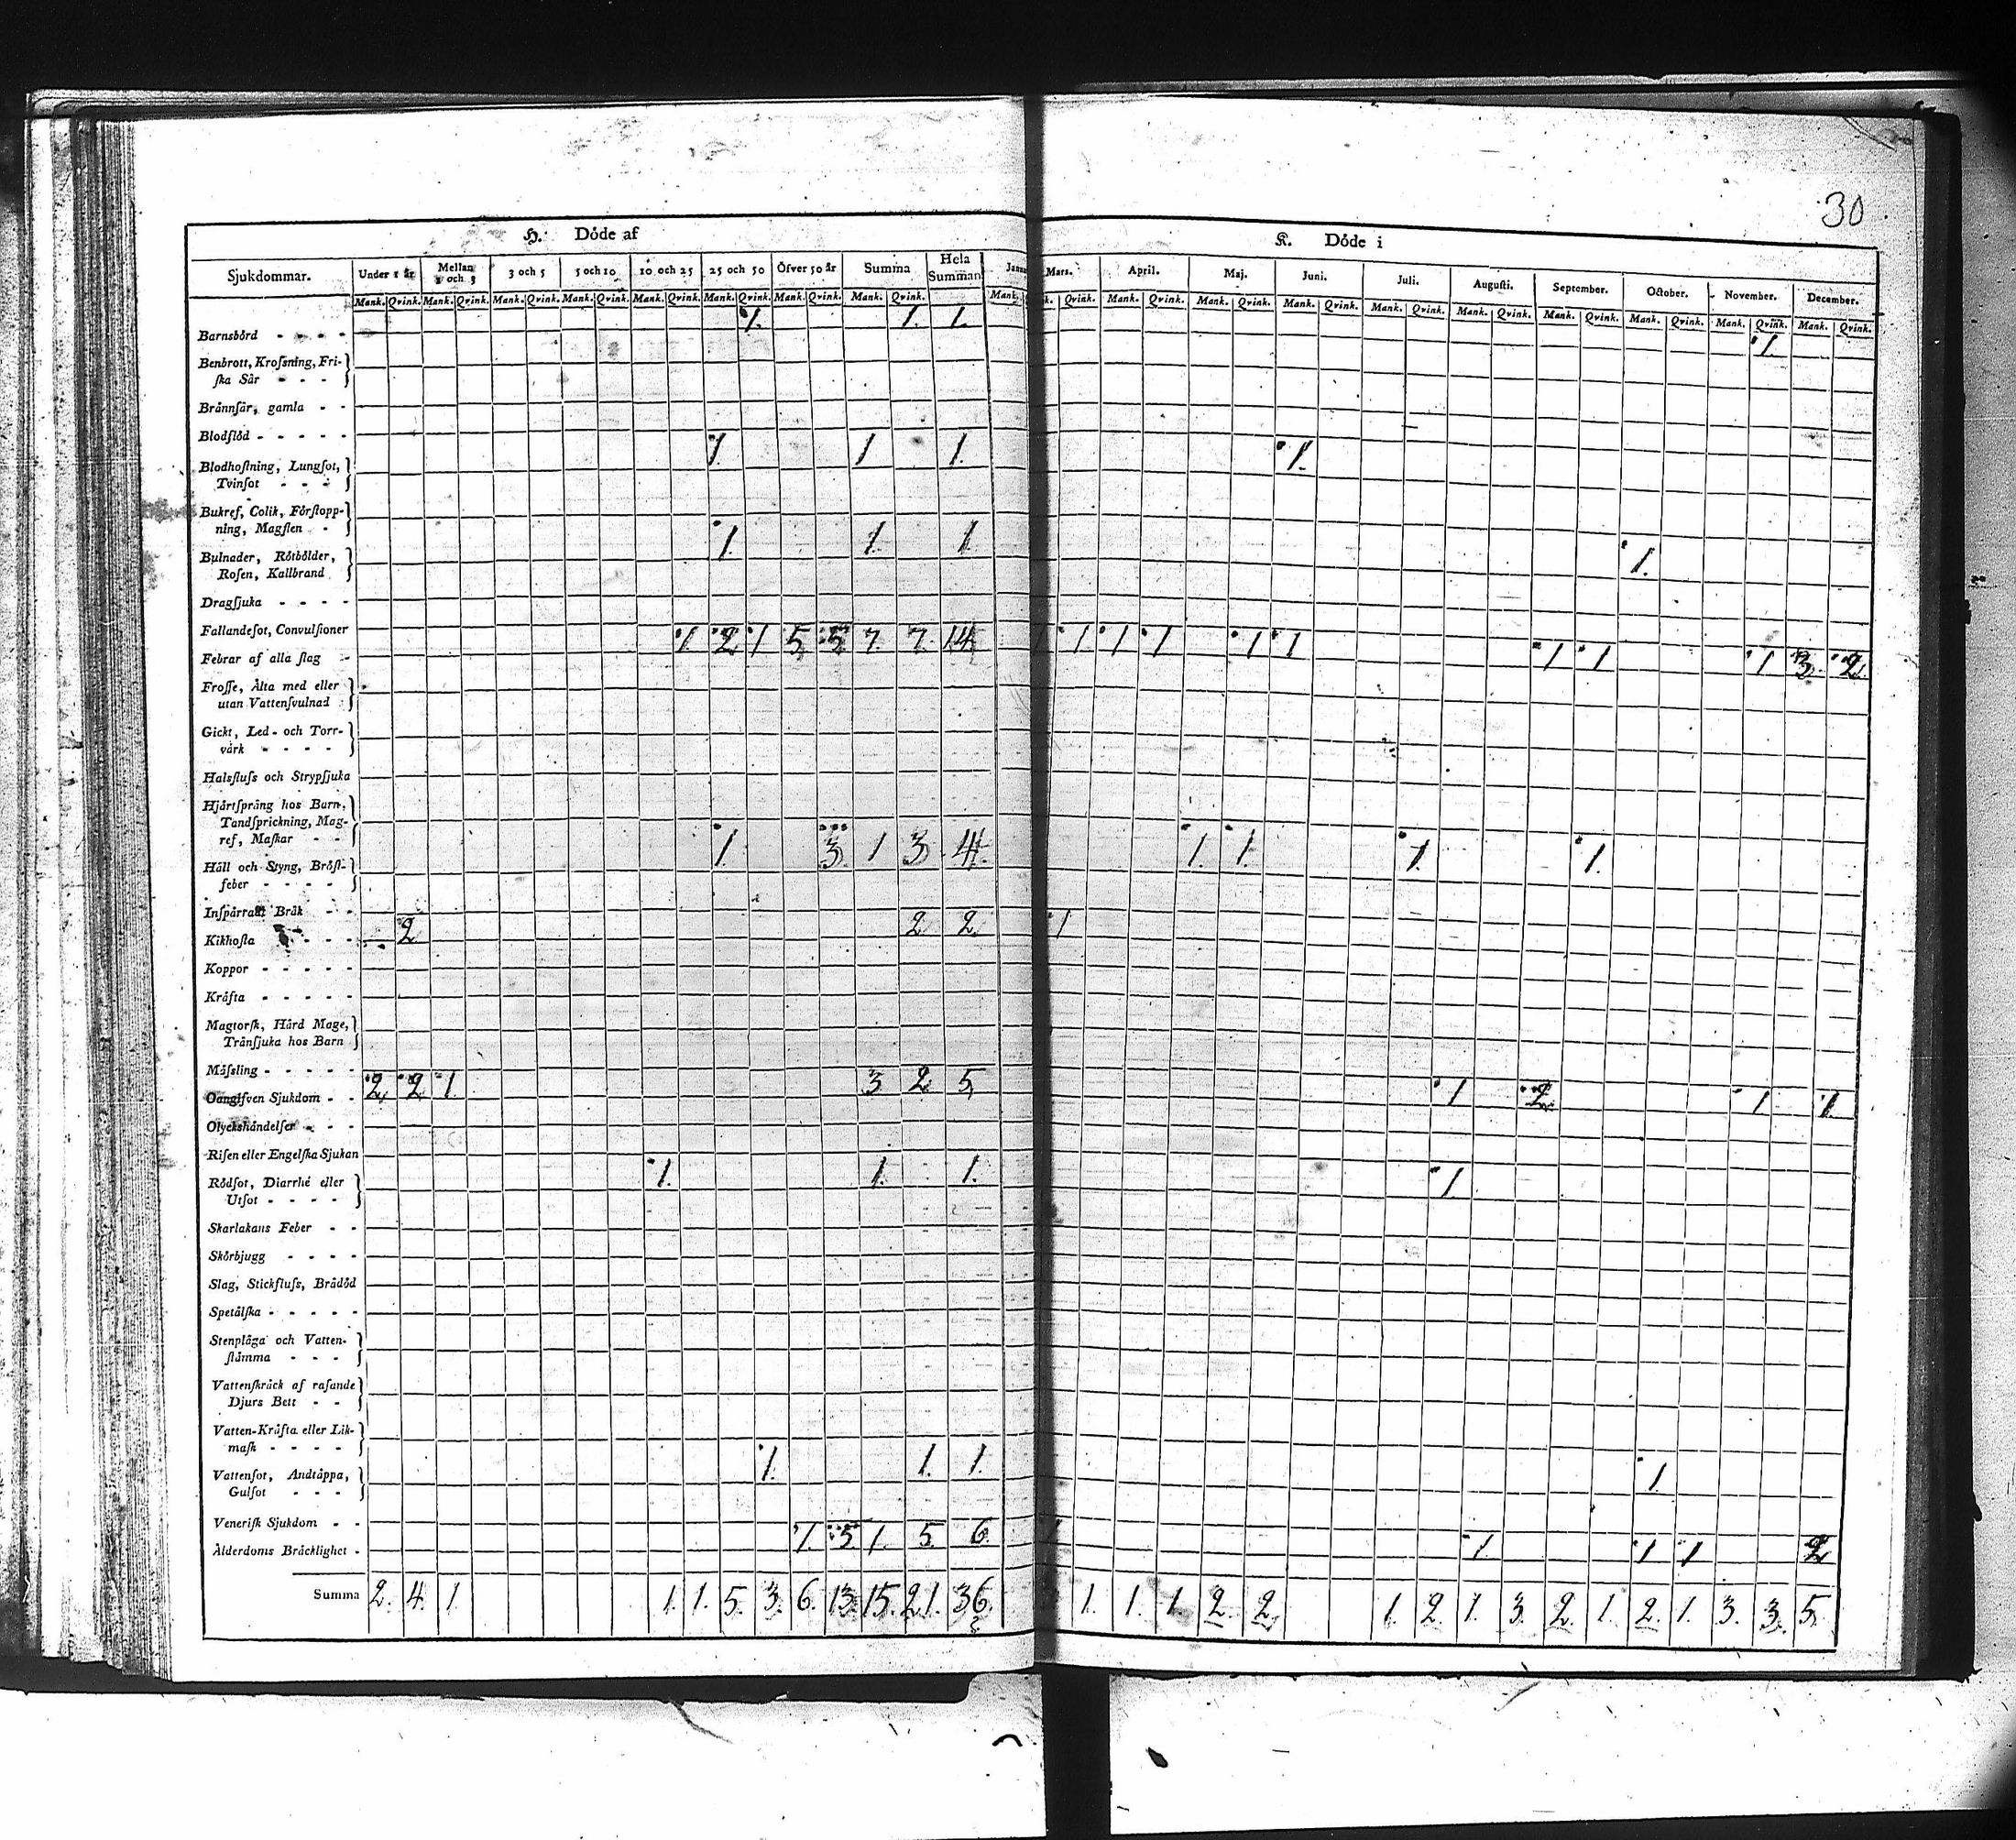 30
H. Döde af
K. Döde i
Sjukdommar. Under 1 år Mellan 1 och 3 3 och 5 5 och 10 10 och 25 25 och 50 Öfver 50 år Summa Hela Summan Mars. April. Maj. Juni. Juli. Augusti. September. October. November. December.
Mank. Qvink. Mank. Qvink. Mank. Qvink. Mank. Qvink. Mank. Qvink. Mank. Qvink. Mank. Qvink. Mank. Qvink. Mank. Qvink. Mank. Qvink. Mank. Qvink. Mank. Qvink. Mank. Qvink. Mank. Qvink. Mank. Qvink. Mank. Qvink. Mank. Qvink. Mank. Qvink.
Barnsbörd - - - - 1. 1. 1. 1.
Benbrott, Kroſsning, Fri-
ſka Sår - - -
Brännſår, gamla - -
Blodflöd - - - - -
Blodhoſtning, Lungſot, 1. 1 1. 1.
Tvinſot - - -
Bukref, Colik, Förſtopp-
ning, Magſten -
Bulnader, Rötbölder, 1. 1. 1. 1.
Roſen, Kallbrand
Dragſjuka - - - -
Fallandeſot, Convulſioner
Febrar af alla ſlag - 1. 2. 1 5. 5. 7. 7. 14. 1 1 1 1 1 1 1 1 3. 2.
Froſſe, Älta med eller
utan Vattenſvulnad -
Gickt, Led- och Torr-
värk - - - -
Halsfluſs och Strypſjuka
Hjärtſprång hos Barn,
Tandſprickning, Mag-
ref, Maſkar - -
Håll och Styng, Bröſt- 1. 3. 1 3. 4. 1. 1. 1. 1.
feber - - - -
Inſpärradt Bråk - -
Kikhoſta - - - 2 2 2. 1
Koppor - - - - -
Kräfta - - - - -
Magtorſk, Hård Mage,
Tränſjuka hos Barn
Mäſsling - - - - -
Oangifven Sjukdom - - 2. 2. 1. 3 2 5. 1 2. 1. 1.
Olyckshändelſer - - -
Riſen eller Engelſka Sjukan
Rödſot, Diarrhé eller 1. 1. 1. 1.
Utſot - - - -
Skarlakans Feber - -
Skörbjugg - - - -
Slag, Stickfluſs, Brådöd
Spetälſka - - - - -
Stenplåga och Vatten-
ſtämma - - -
Vattenſkräck af raſande
Djurs Bett - -
Vatten-Kräfta eller Lik-
maſk - - - -
Vattenſot, Andtäppa, 1. 1. 1. 1.
Gulſot - - -
Veneriſk Sjukdom - -
Ålderdoms Bräcklighet - 1. 5. 1. 5. 6. 1 1. 1 1. 2.
Summa 2. 4. 1. 1. 1. 5. 3. 6. 13. 15. 21. 36. 1. 1. 1. 2. 2. 1. 2. 1. 3. 2. 1. 2. 1. 3. 3. 5.